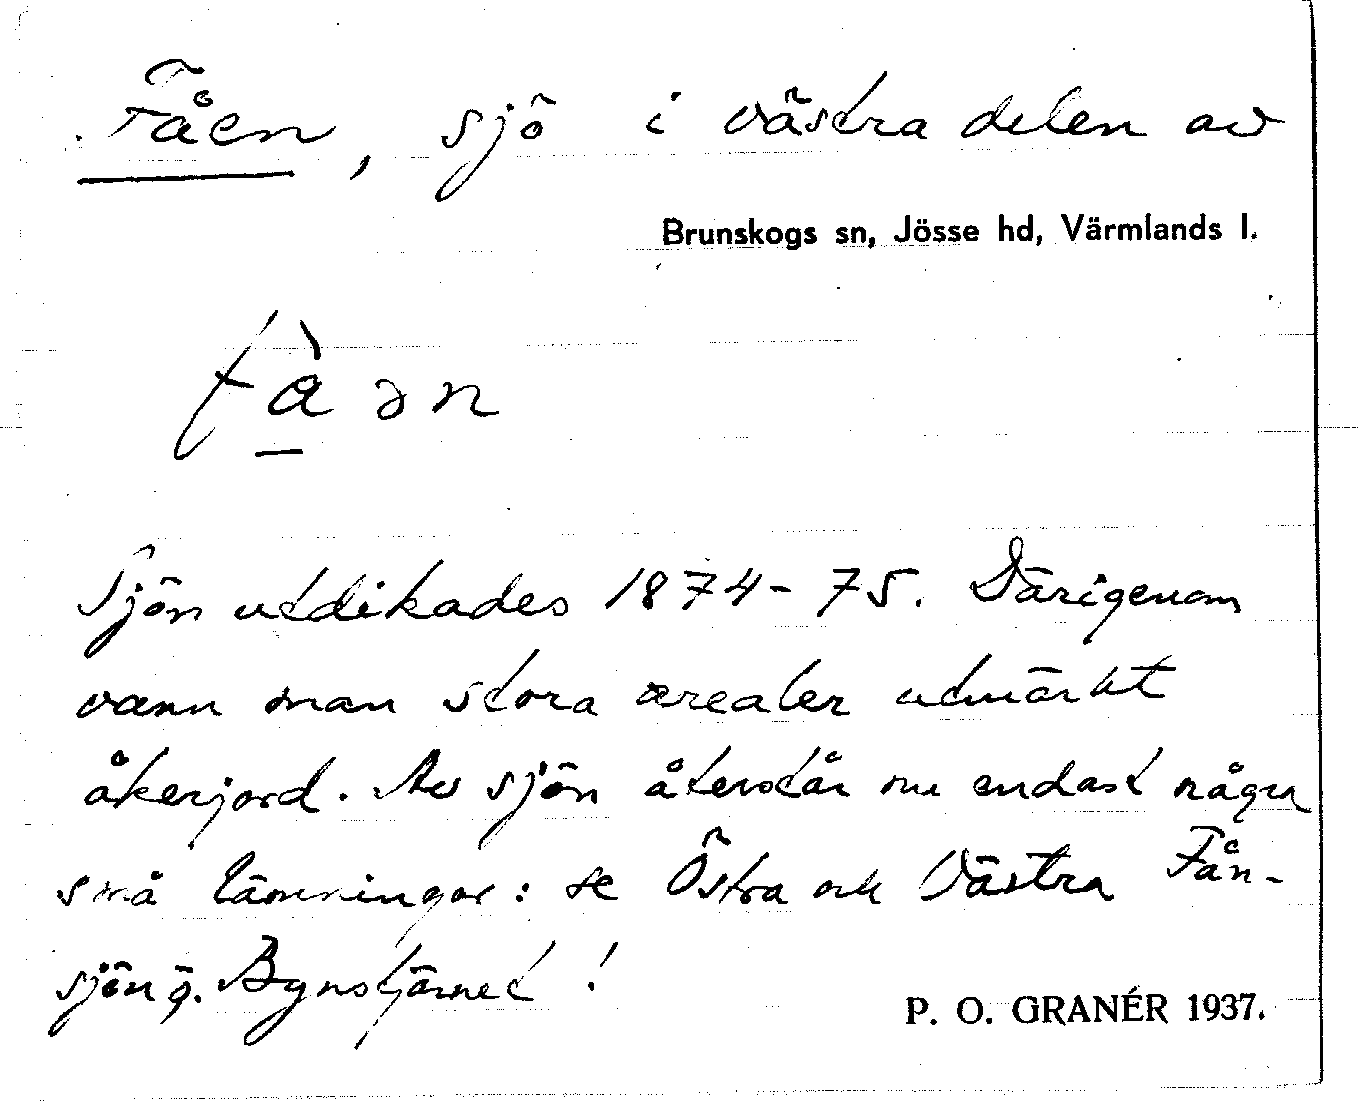 Fåen, sjö i västra delen av
Brunskogs sn, Jösse hd, Värmlands l.
fàən
Sjön utdikades 1874-75. Därigenom
vann man stora arealer utmärkt
åkerjord. Av sjön återstår nu endast några
små lämningar: se Östra och Västra Fån-
sjön o. Bynstjärnet!
P. O. GRANÉR 1937.